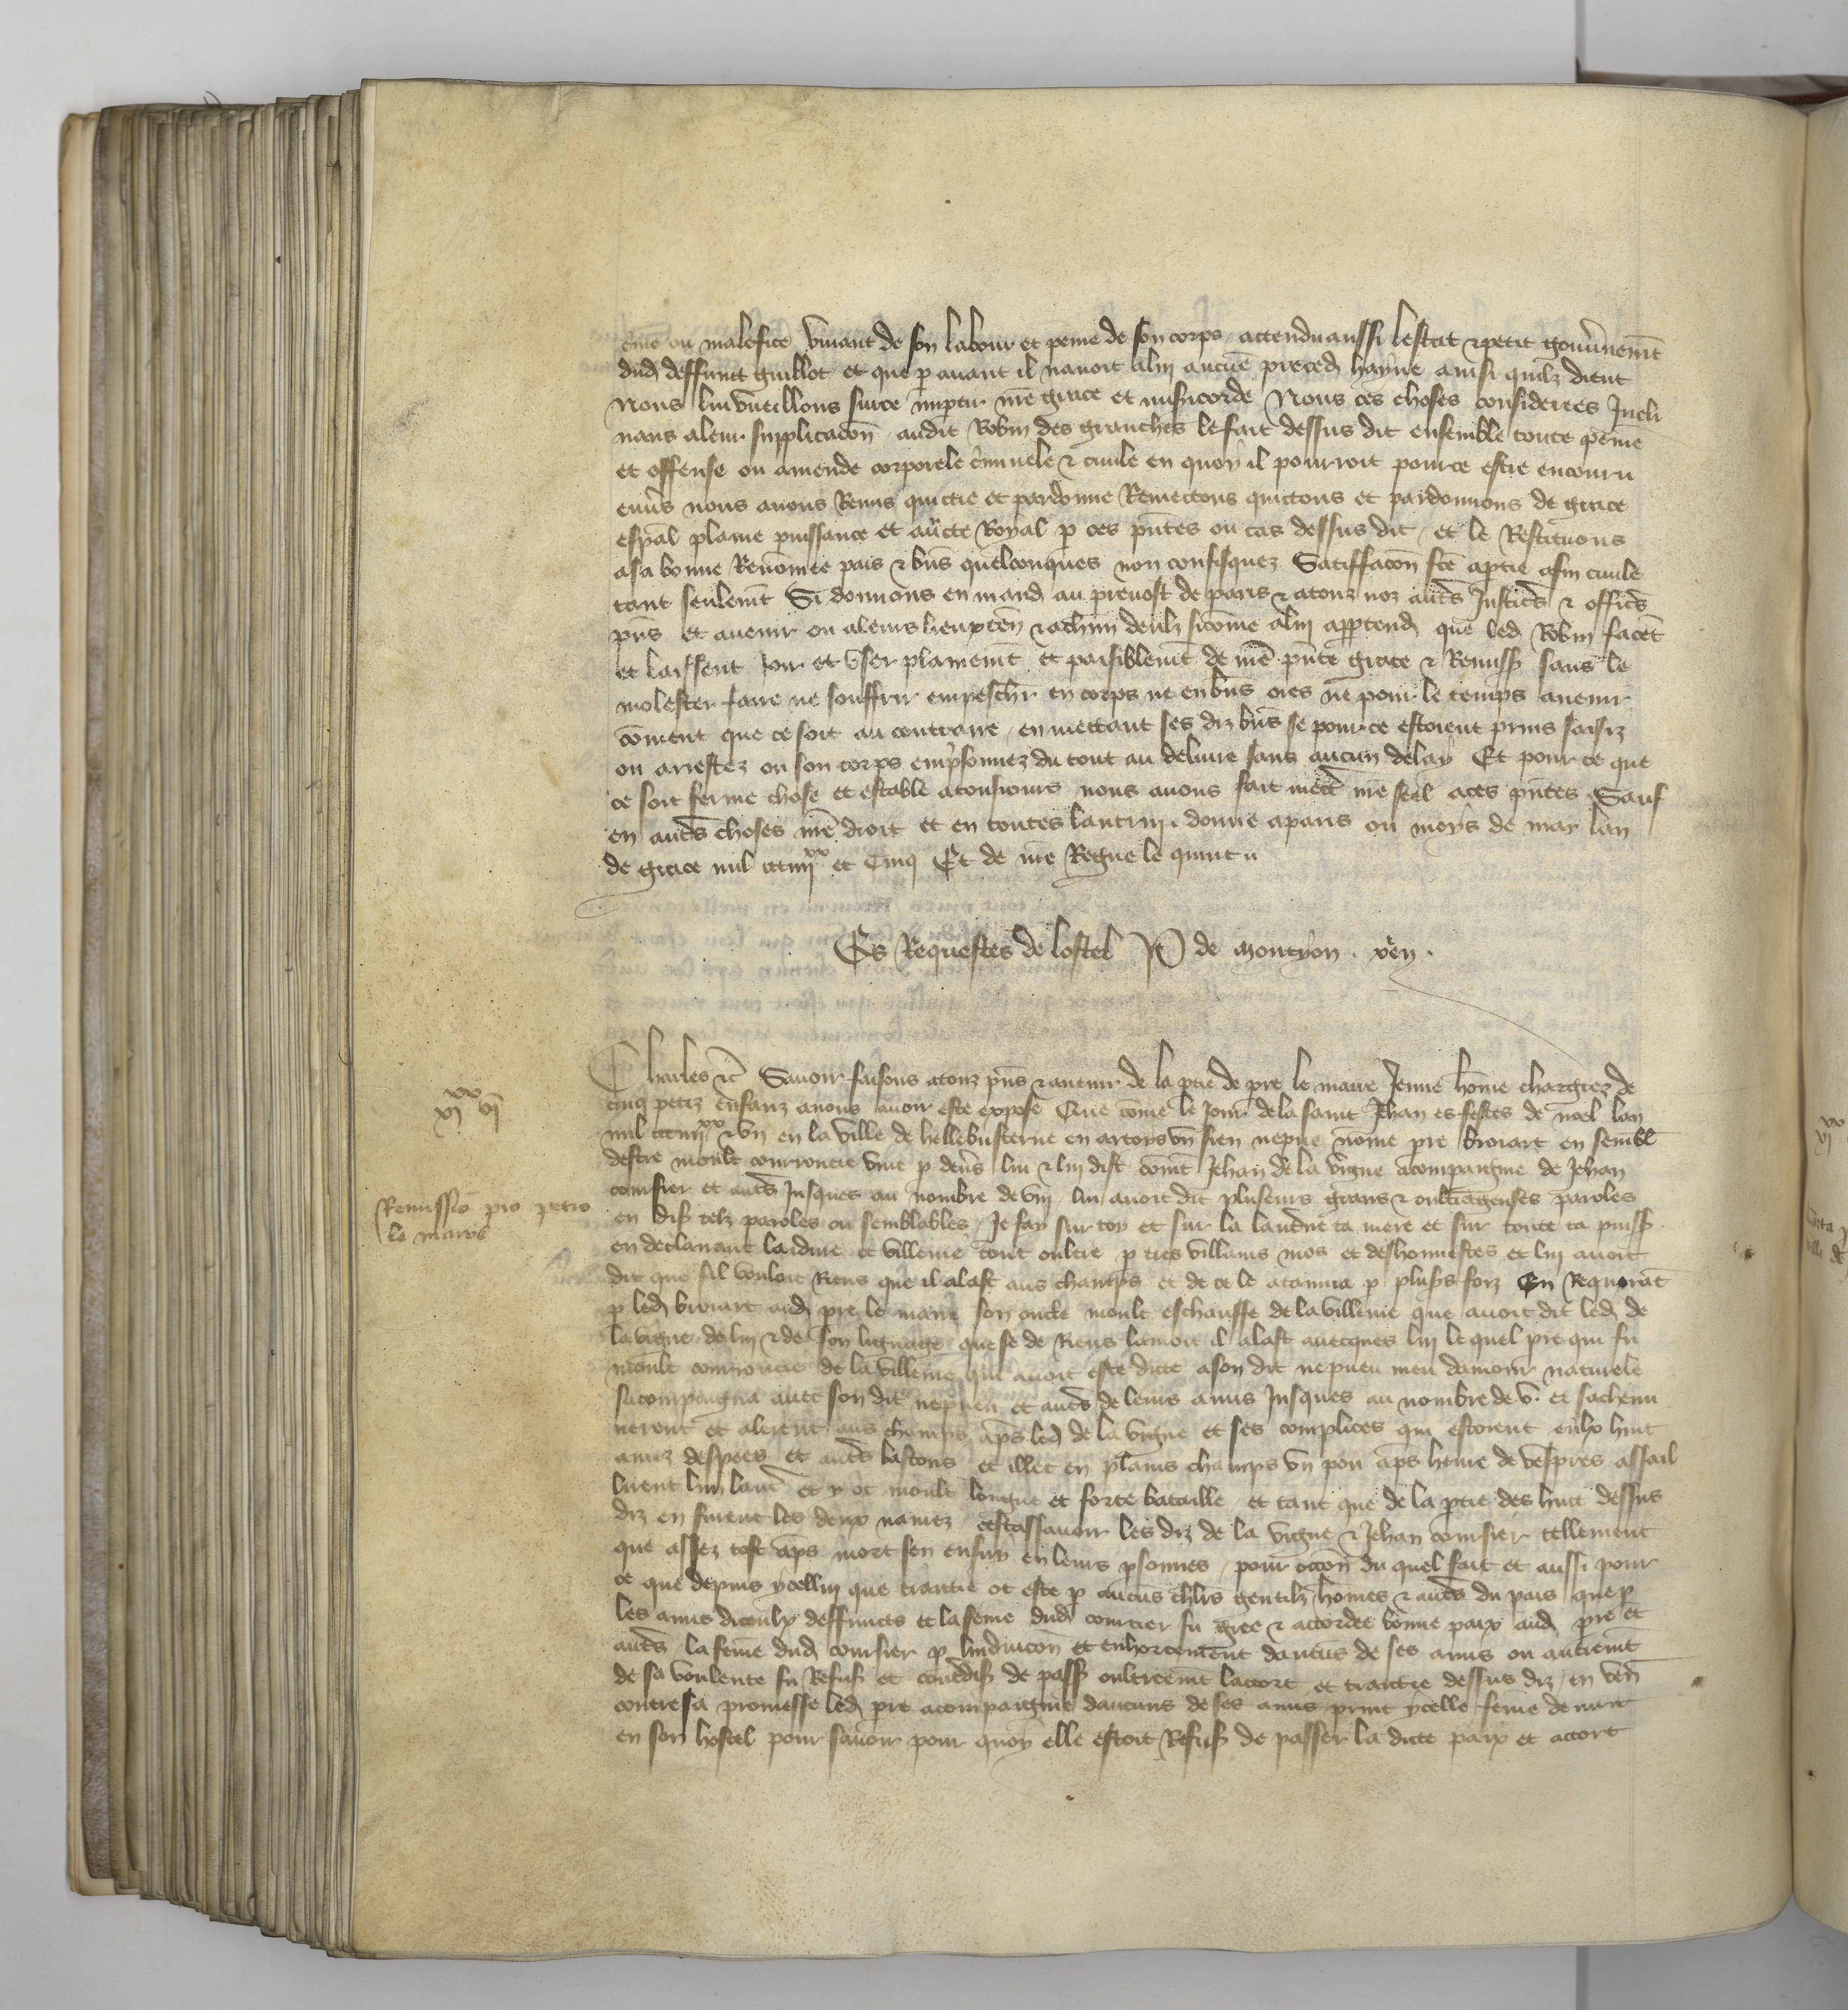 crime ou malefice vivant de son labour et peine de son corps / attendu aussi lestat & petit gouvnemt
dud deffunct guillot et que p avant il navoit a lui aucune preced hayne ainsi quilz dient
Nous lui vueillons sur ce impartir nre grace et misicorde Nous ces choses considerees Incli
nans a leur supplicacon / audit Robin des granches le fait dessus dit ensemble toute peine
et offense ou amende corporele criminele & civile en quoy il pourroit pour ce estre encouru
envs nous avons Remis quictie et pardonne Remectons quictons et pardonnons de grace
espal plaine puissance et aucte Royal p ces pntes ou cas dessus dit / et le Restituons
a sa bonne Renomee pais & bns quelconques non confisquez Satiffacon fce a ptie a fin civile
tant seulemt Si donnons en mand au prevost de paris & a touz noz auts Justics & offics
pns et avenir ou a leurs lieuxten & a chun deulz sicome a lui apptend que led Robin facet
et laissent joir et user plainemt et paisiblemt de nre pnte grace & Remiss sans le
molester faire ne souffrir empeschr en corps ne en bns ores ne pour le temps avenir
coment que ce soit au contraire / en mettant ses diz bns se pour ce estoient prins saisiz
ou arrestez ou son corps emprisonnez du tout au delivre sans aucun delay Et pour ce que
ce soit ferme chose et estable a tousiours nous avons fait mett nre seel a ces pntes Sauf
en auts choses nre droit et en toutes lautrui . donne a paris ou moys de may lan
de grace mil ccciiiixx et Cinq Et de nre Regne le quint
Es Requestes de lostel P de montyon . xen .
xxvi vi
Charles etc Savoir faisons a touz pns & avenir de la ptie de pre le maire Jeune home chargiez de
cinq petiz enfanz a nous avoir este expose Que come le Jour de la saint Jehan es festes de noel lan
mil ccciiiixx & un en la ville de hellebusterne en artoys un sien nepueu nome pre broiart en sembl
destre moult courroucie vint p devs lui & lui dist comt Jehan de la vigne acompaigne de Jehan
coursier et auts Jusques au nombre de viii lui avoit dit pluseurs grans & oultrageuses paroles
Remissio pro petro
le maire
en dis telz paroles ou semblables / Je fay sur toy et sur la landne ta mere et sur toute ta puiss
en declairant laidure et villenie tout oultre p tres villains mos et deshonnestes et lui avoit
dit que sil vouloit Riens que il alast aus champs et de ce le atainna p plusrs foiz En Requerat
p led broiart aud pre le maire son oncle moult eschauffe de la villenie que avoit dit led de
la vigne de lui & de son lignage que se de Riens lamoit il alast avecques lui lequel pre qui fu
moult courroucie de la villenie qui avoit este dicte a son dit nepueu meu damour naturele
sacompaigna avec son dit nepueu et auts de leurs amis Jusques au nombre de v. et sachemi
nerent et alerent aus champs aps led de la vigne et ses complices qui estoient eulx huit
armez despees et auts bastons et illec en plains champs un pou aps heure de vespres assail
lirent lun laut et y ot moult longue et forte bataille / et tant que de la ptie des huit dessus
diz en furent les deux navrez cestassavoir les diz de la vigne & Jehan coursier tellement
que assez tost aps mort sen ensui en leurs psonnes / pour occon du quel fait et aussi pour
ce que depuis ycellui que traittie ot este p aucuns chlrs gentilz homes & auts du pais que p
les amis diceulx deffuncts et la feme dud coursier fu gree & accordee bonne paix aud pre et
auts la feme dud coursier p linduicon et enhortement daucus de ses amis ou autremt
de sa voulente fu Refus et contredis de pass oultreemt laccort et traittie dessus diz / en ven
contre sa promesse led pre acompaigne daucuns de ses amis print ycelle feme de nuit
en son hostel pour savoir pour quoy elle estoit Refus de passer la dicte paix et accort